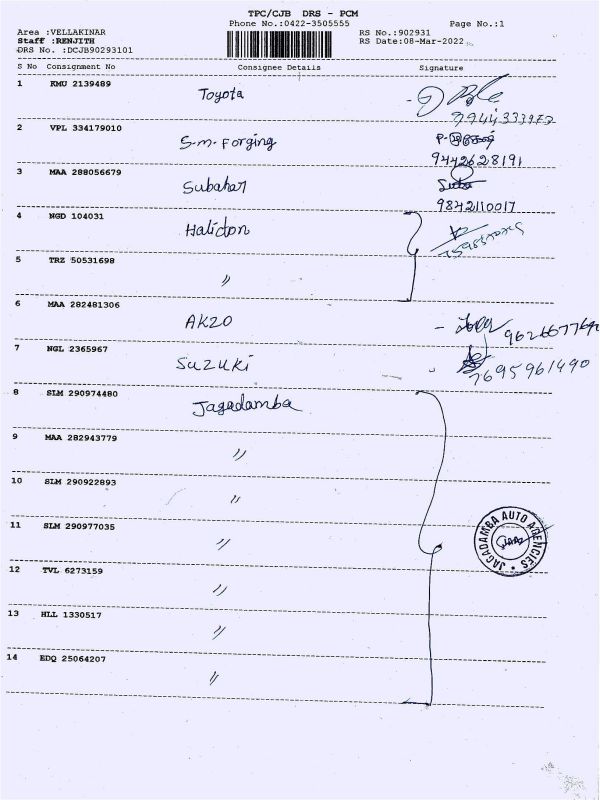 TPC/CJB DRS - PCM
Phone No.:0422-3505555
Page No.:1
Area :VELLAKINAR
RS No.:902931
Staff :RENJITH
RS Date:08-Mar-2022
DRS No. :DCJB90293101
S No Consignment No Consignee Details Signature
1 KMU 2139489 Toyota
2 VPL 334179010 S.M. Forging
9442628191
3 MAA 288056679 Subahar
9842110017
4 NGD 104031 Haliton
5 TRZ 50531698 〃
6 MAA 282481306 AKZO
7 NGL 2365967 SUZUKI
7695961490
8 SLM 290974480 Jagadamba
9 MAA 282943779 〃
10 SLM 290922893 〃
11 SLM 290977035 〃
JAGADAMBA AUTO AGENCIES
12 TVL 6273159 〃
13 HLL 1330517 〃
14 EDQ 25064207 〃